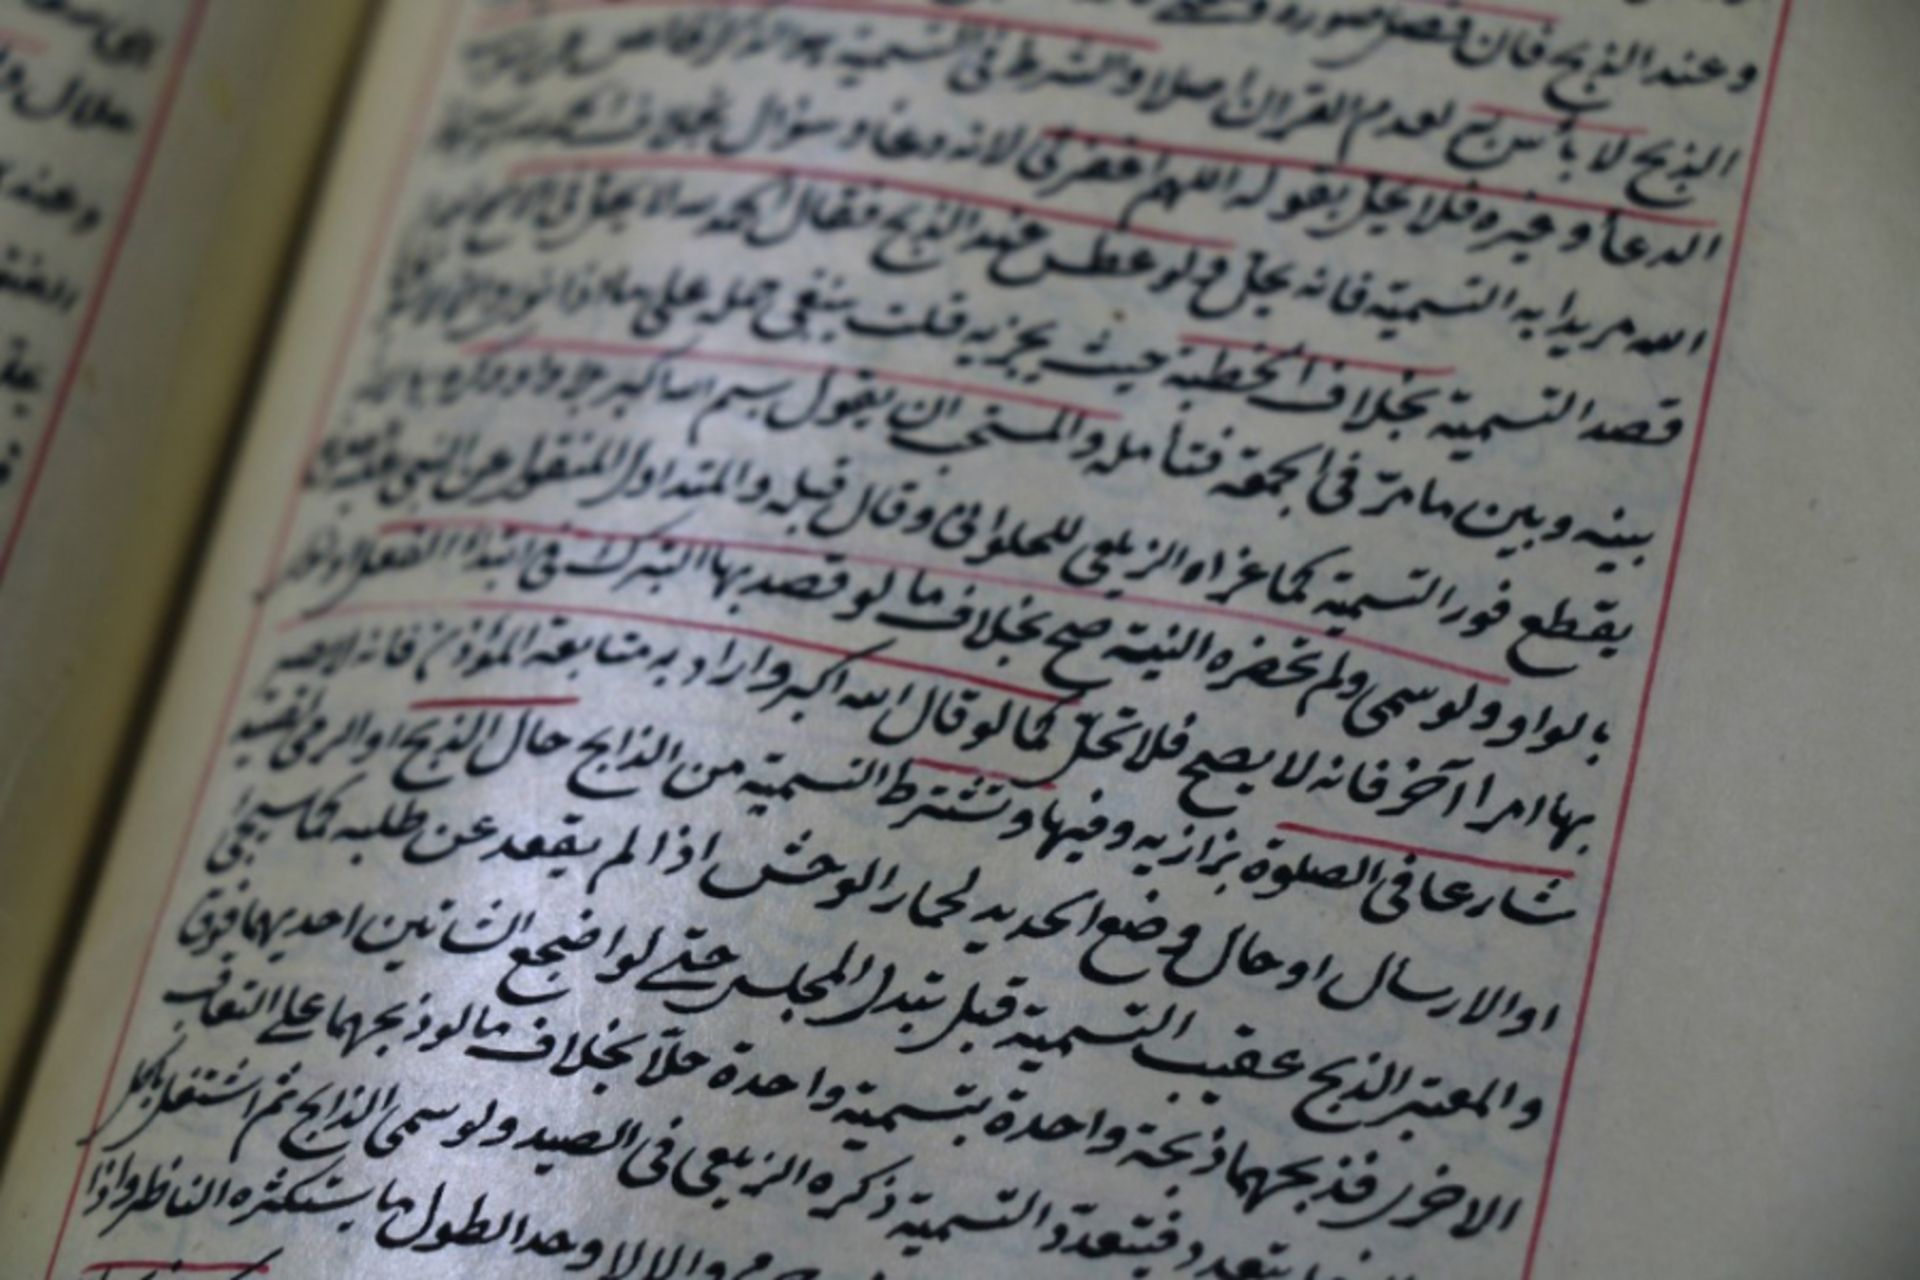 وعند الذبح فان فصل صورة
الذبح لا بأس به لعدم القران اصلا والشرط في التسمية هو الذكر الخالص عن
الدعا وغيره فلا يحل بقوله اللهم اغفر لي لانه دعا وسؤال بخلاف الحمد لله
الله مريدا به التسمية فانه يحل ولو عطس عند الذبح فقال الحمد لله لا يحل في الاصح
قصد التسمية بخلاف الخطبة حيث يجزيه قلت ينبغي حمله على ما اذا نوى
بينه وبين ما مر في الجمعة فتأمله والمستحب ان يقول بسم الله الله اكبر بلا واو وكره بها لانه
يقطع فور التسمية كما عزاه الزيلعي للحلواني وقال قبله والمتداول المنقول عن النبي
بالواو ولو سمى ولم تحضره النية صح بخلاف ما لو قصد بها التبرك في ابتداء الفعل او نوى
بها امرا آخر فانه لا يصح فلا تحل كما لو قال الله اكبر واراد به متابعة المؤذن فانه لا يصير
شارعا في الصلوة بزازيه وفيها وتشترط التسمية من الذابح حال الذبح او الرمي لصيد
او الارسال او حال وضع الحديد لحمار الوحش اذا لم يقعد عن طلبه كما سيجئ
والمعتبر الذبح عقيب التسمية قبل تبدل المجلس حتى لو اضجع الشاتين احديهما فوق
الاخرى فذبحهما ذبحة واحدة بتسمية واحدة حلا بخلاف ما لو ذبحهما على التعاقب
يتعدد فتتعدد التسمية ذكره الزيلعي في الصيد ولو سمى الذابح ثم اشتغل باكل
والا لا وحد الطول ما يستكثره الناظر واذا